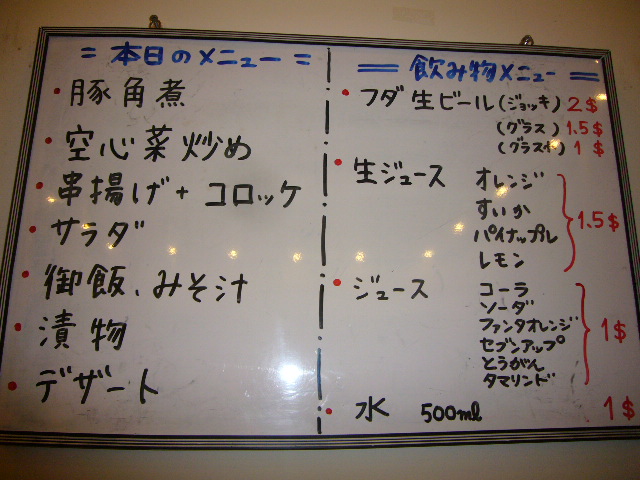 = 本日のメニュー =
・豚角煮
・空心菜炒め
・串揚げ+コロッケ
・サラダ
・御飯、みそ汁
・漬物
・デザート
== 飲み物メニュー ==
・フダ生ビール(ジョッキ) 2$
(グラス) 1.5$
(グラス小) 1$
・生ジュース オレンジ
すいか
パイナップル
レモン
1.5$
・ジュース コーラ
ソーダ
ファンタオレンジ
セブンアップ
とうがん
タマリンド
1$
・水 500ml 1$